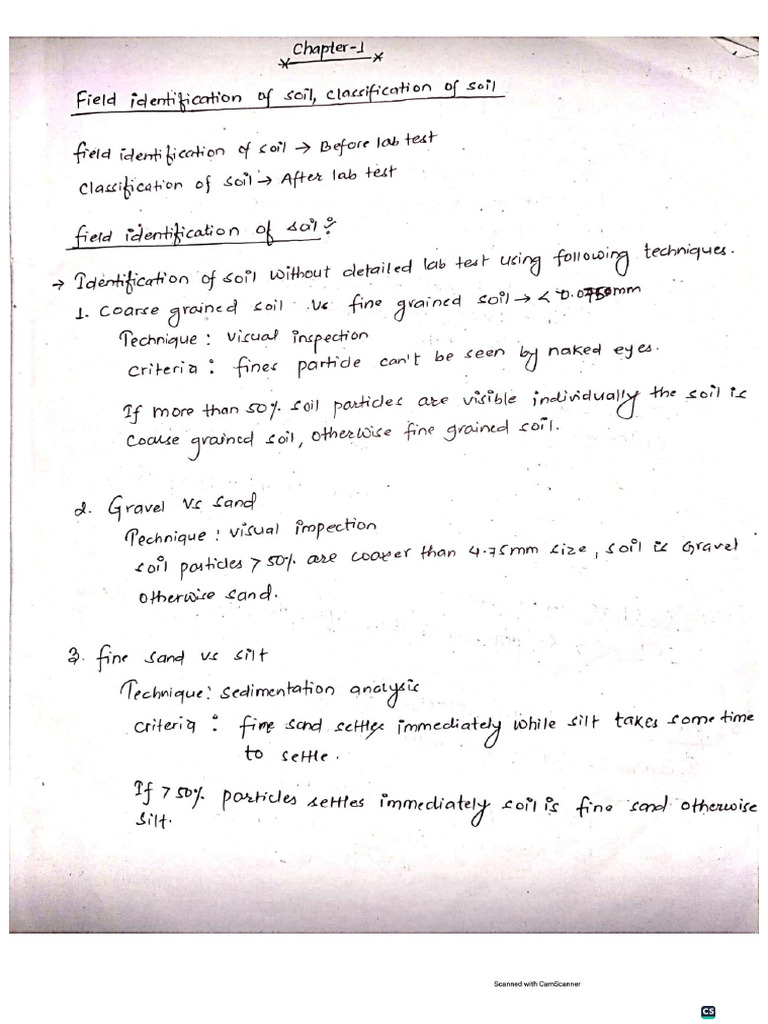 Chapter-1
Field identification of soil, classification of soil
field identification of soil → Before lab test
Classification of soil → After lab test
field identification of soil:
→ Identification of soil without detailed lab test using following techniques.
1. Coarse grained soil Vs fine grained soil → < 0.0750mm
Technique: visual inspection
Criteria: fines particle can't be seen by naked eyes.
If more than 50% soil particles are visible individually the soil is
Coarse grained soil, otherwise fine grained soil.
2. Gravel Vs Sand
Technique: visual inspection
soil particles > 50% are coarer than 4.75mm size, soil is Gravel
otherwise sand.
3. fine sand vs silt
Technique: sedimentation analysis
Criteria: fine sand settles immediately while silt takes some time
to settle.
If > 50% particles settles immediately soil is fine sand otherwise
silt.
Scanned with CamScanner
CS